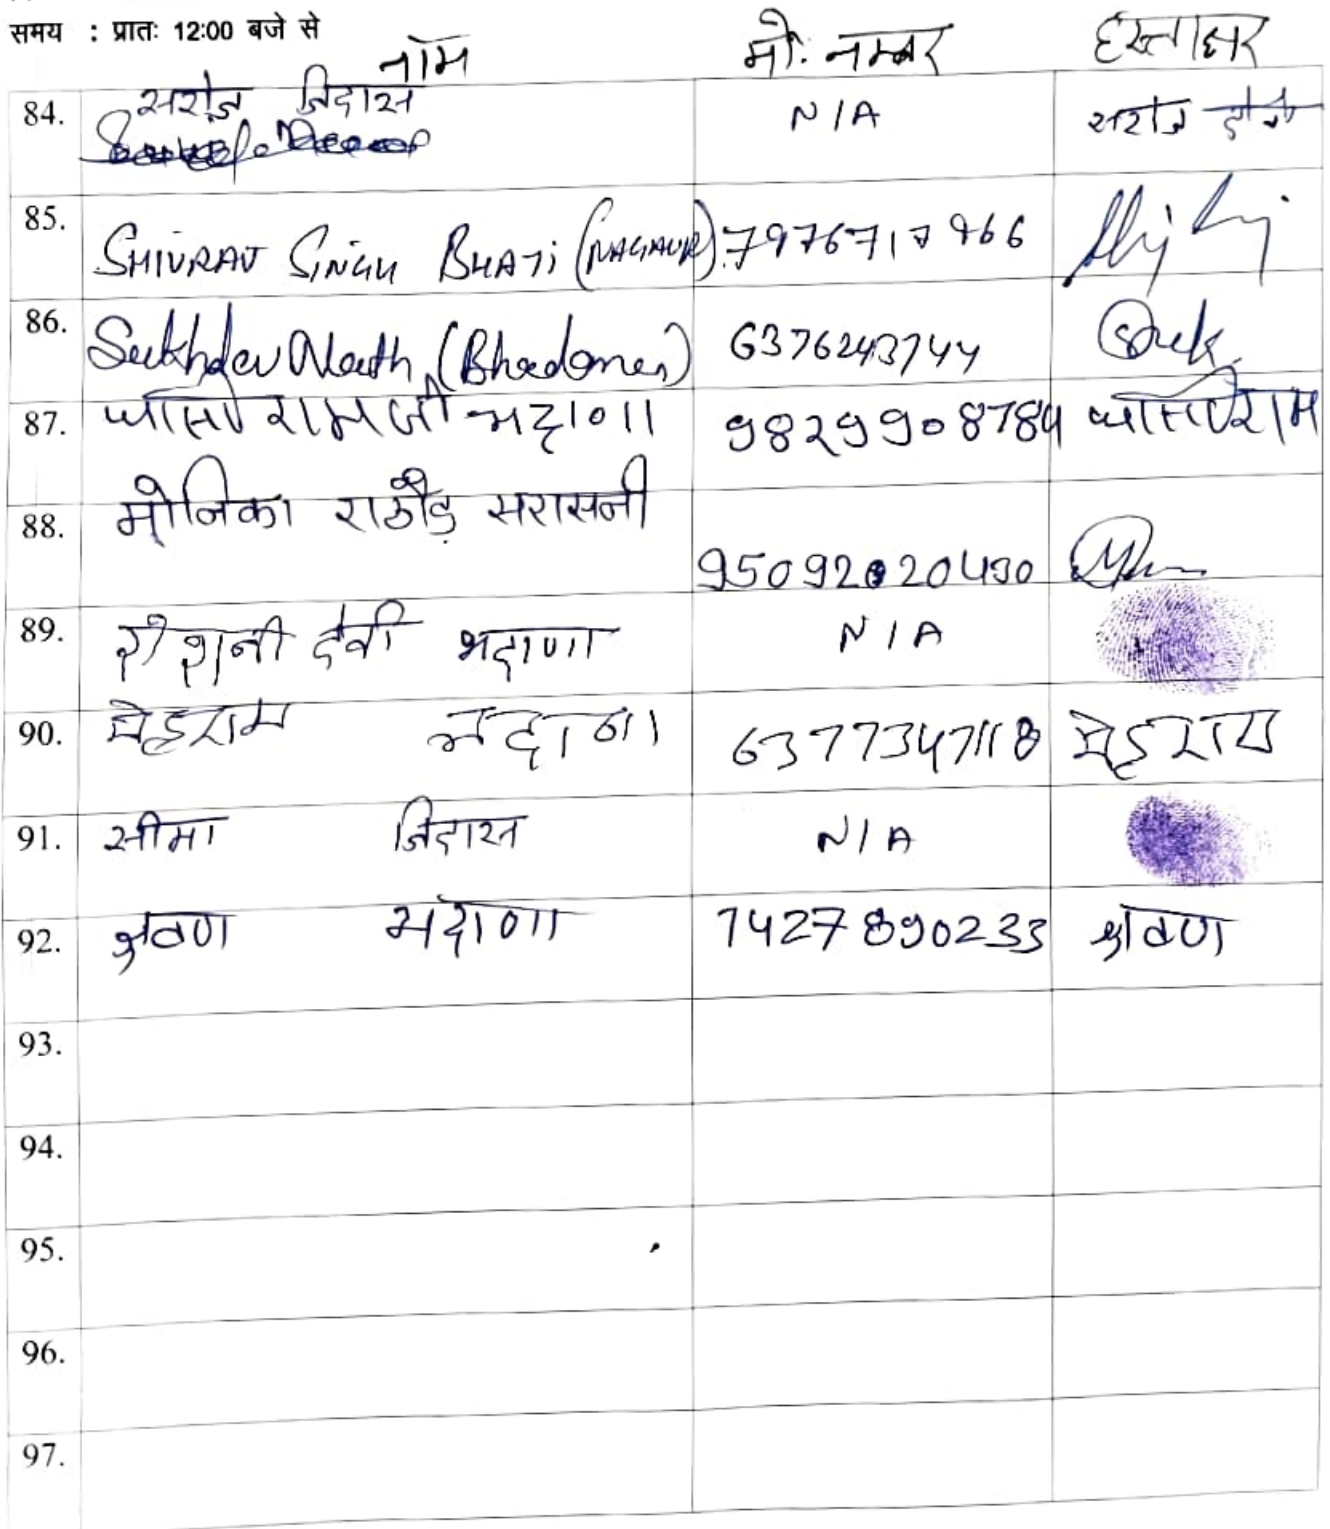 समय : प्रातः 12:00 बजे से
नॉम मो. नम्बर हस्ताक्षर
84. सरोज निदास N/A सरोज
85. SHIVRAJ SINGH BHATI (NAGAUR) 7976717966
86. Sukhdev Nath (Bhadana) 6376243744
87. घासी रामजी भदाणा 9829908784 घासीराम
88. मोनिका राठौड़ सरासनी
95092020430
89. रोशनी देवी भदाणा N/A
90. मेहराम भदाना 6377347118 मेहराम
91. सीमा निदास N/A
92. श्रवण भदाणा 7427890233 श्रवण
93.
94.
95.
96.
97.